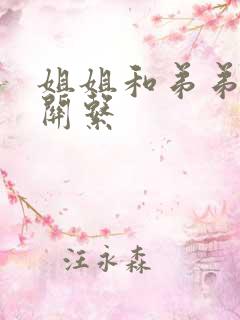 姐姐和弟弟
關繫
汪永森